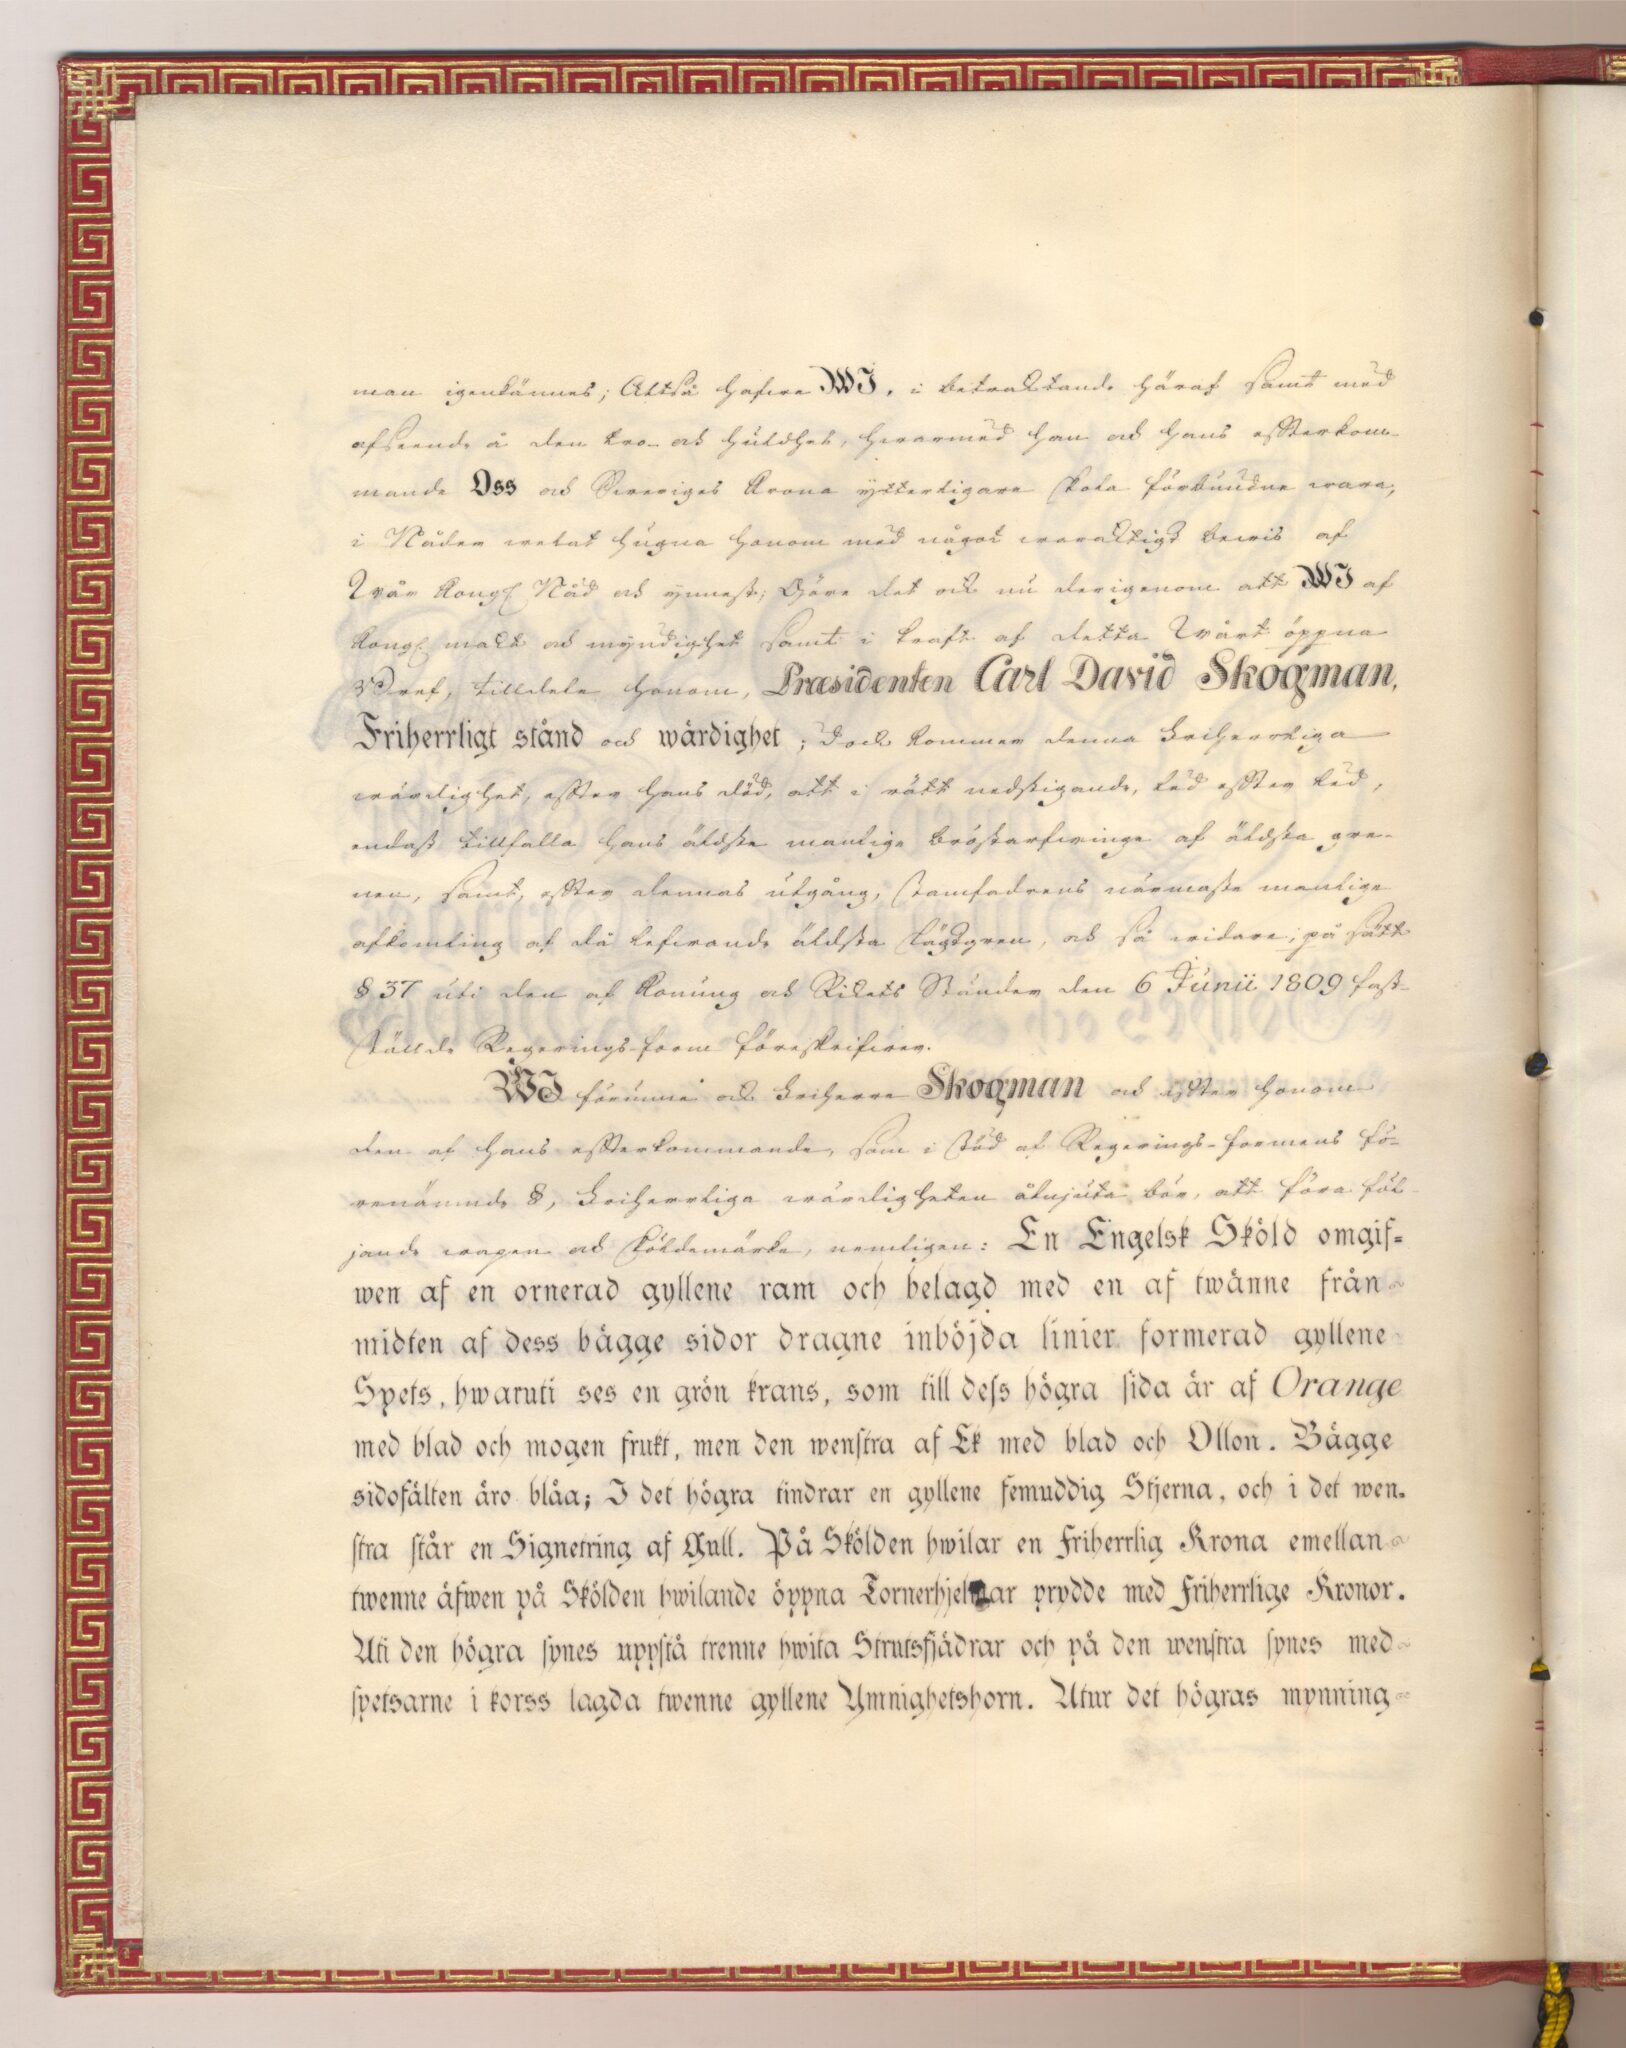 man igenkännes; Alltså hafve WJ, i betraktande häraf samt med
afseende å den tro- och huldhet, hwarmed han och hans efterkom-
mande Oss och Sveriges Krona ytterligare skola förbundne wara,
i Nåder welat hugna honom med något waraktigt bewis af
Wår Kongl. Nåd och ynnest; Göre det ock nu derigenom att WJ af
Kongl. makt och myndighet samt i kraft af detta Wårt öppna
Bref, tilldela honom, Præsidenten Carl David Skogman,
Friherrligt stånd och wärdighet; dock kommer denna Friherrliga
wärdighet, efter hans död, att i rätt nedstigande, led efter led,
endast tillfalla hans äldste manlige bröstarfwinge af äldsta gre-
nen, samt, efter dennas utgång, stamfadrens närmaste manlige
afkomling af då lefwande äldsta slägtgren, och så widare; på sätt
§ 37 uti den af Konung och Rikets Ständer den 6 Junii 1809 fast-
ställde Regerings-form föreskrifwer.
WJ förunne ock Friherre Skogman och efter honom
den af hans efterkommande, som i stöd af Regerings-formens fö-
renämnde §, Friherrliga wärdigheten åtnjuta bör, att föra föl-
jande wapen och sköldemärke, nemligen: En Engelsk Sköld omgif=
wen af en ornerad gyllene ram och belagd med en af twänne från
midten af dess bägge sidor dragne inböjda linier formerad gyllene
Spets, hwaruti ses en grön krans, som till dess högra sida är af Orange
med blad och mogen frukt, men den wenstra af Ek med blad och Ollon. Bägge
sidofälten äro blåa; I det högra tindrar en gyllene femuddig Stjerna, och i det wen-
stra står en Signetring af Gull. På Skölden hwilar en Friherrlig Krona emellan
twenne äfwen på Skölden hwilande öppna Tornerhjelmar prydde med Friherrlige Kronor.
Uti den högra synes uppstå trenne hwita Strutsfjädrar och på den wenstra synes med
spetsarne i korss lagda twenne gyllene Ymnighetshorn. Utur det högras mynning